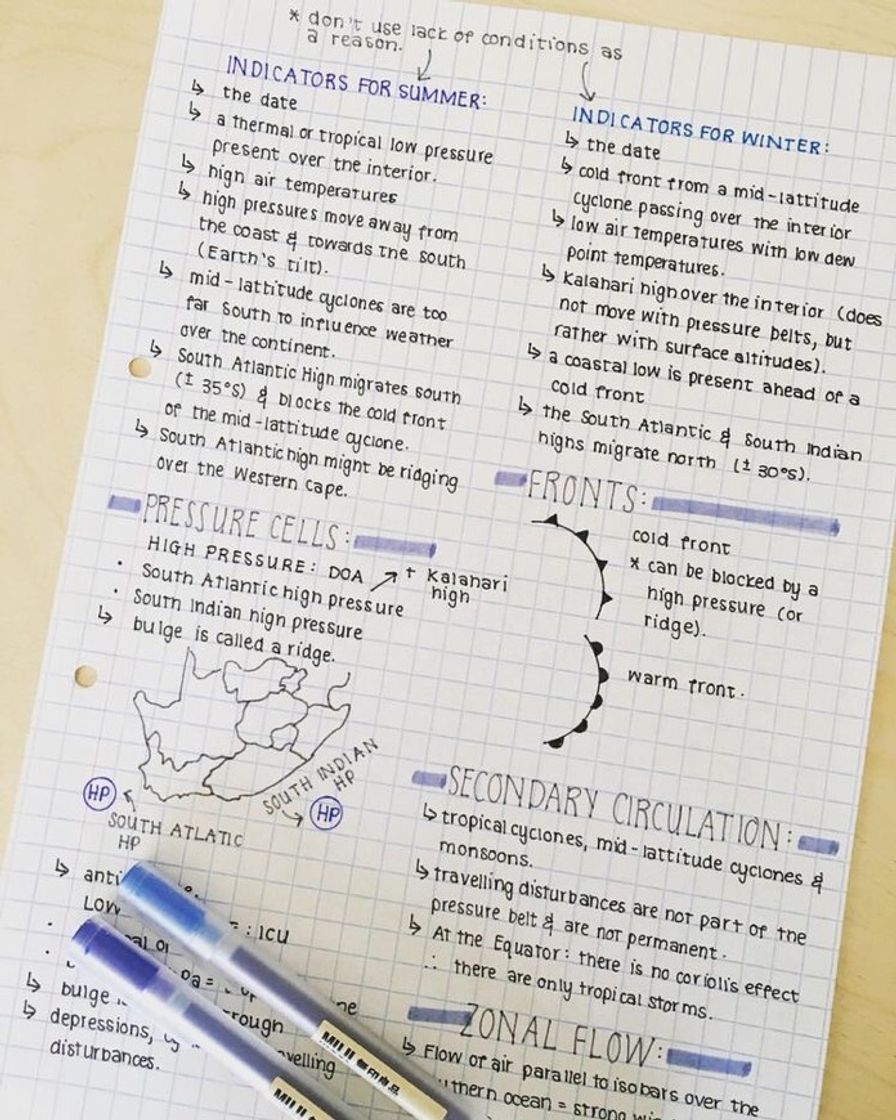 * don't use lack of conditions as
a reason.
INDICATORS FOR SUMMER:
↳ the date
↳ a thermal or tropical low pressure
present over the interior.
↳ high air temperatures
↳ high pressures move away from
the coast & towards the south
(Earth's tilt).
↳ mid-lattitude cyclones are too
far South to influence weather
over the continent.
↳ South Atlantic High migrates south
(± 35°S) & blocks the cold front
of the mid-lattitude cyclone.
↳ South Atlantic high might be ridging
over the Western Cape.
PRESSURE CELLS:
HIGH PRESSURE: DOA ↗ + Kalahari
high
· South Atlantic high pressure
· South Indian high pressure
↳ bulge is called a ridge.
SOUTH INDIAN
HP
HP
HP
SOUTH ATLATIC
HP
↳ anti
LOW : ICU
pa =
↳ bulge
↳ depressions,
disturbances.
INDICATORS FOR WINTER:
↳ the date
↳ cold front from a mid-lattitude
cyclone passing over the interior
↳ low air temperatures with low dew
point temperatures.
↳ Kalahari high over the interior (does
not move with pressure belts, but
rather with surface altitudes).
↳ a coastal low is present ahead of a
cold front
↳ the South Atlantic & South Indian
highs migrate north (± 30°S).
FRONTS:
cold front
* can be blocked by a
high pressure (or
ridge).
warm front.
SECONDARY CIRCULATION:
↳ tropical cyclones, mid-lattitude cyclones &
monsoons.
↳ travelling disturbances are not part of the
pressure belt & are not permanent.
↳ At the Equator: there is no coriolis effect
∴ there are only tropical storms.
ZONAL FLOW:
↳ Flow of air parallel to isobars over the
ocean = strong
MUJI 無印良品
MUJI